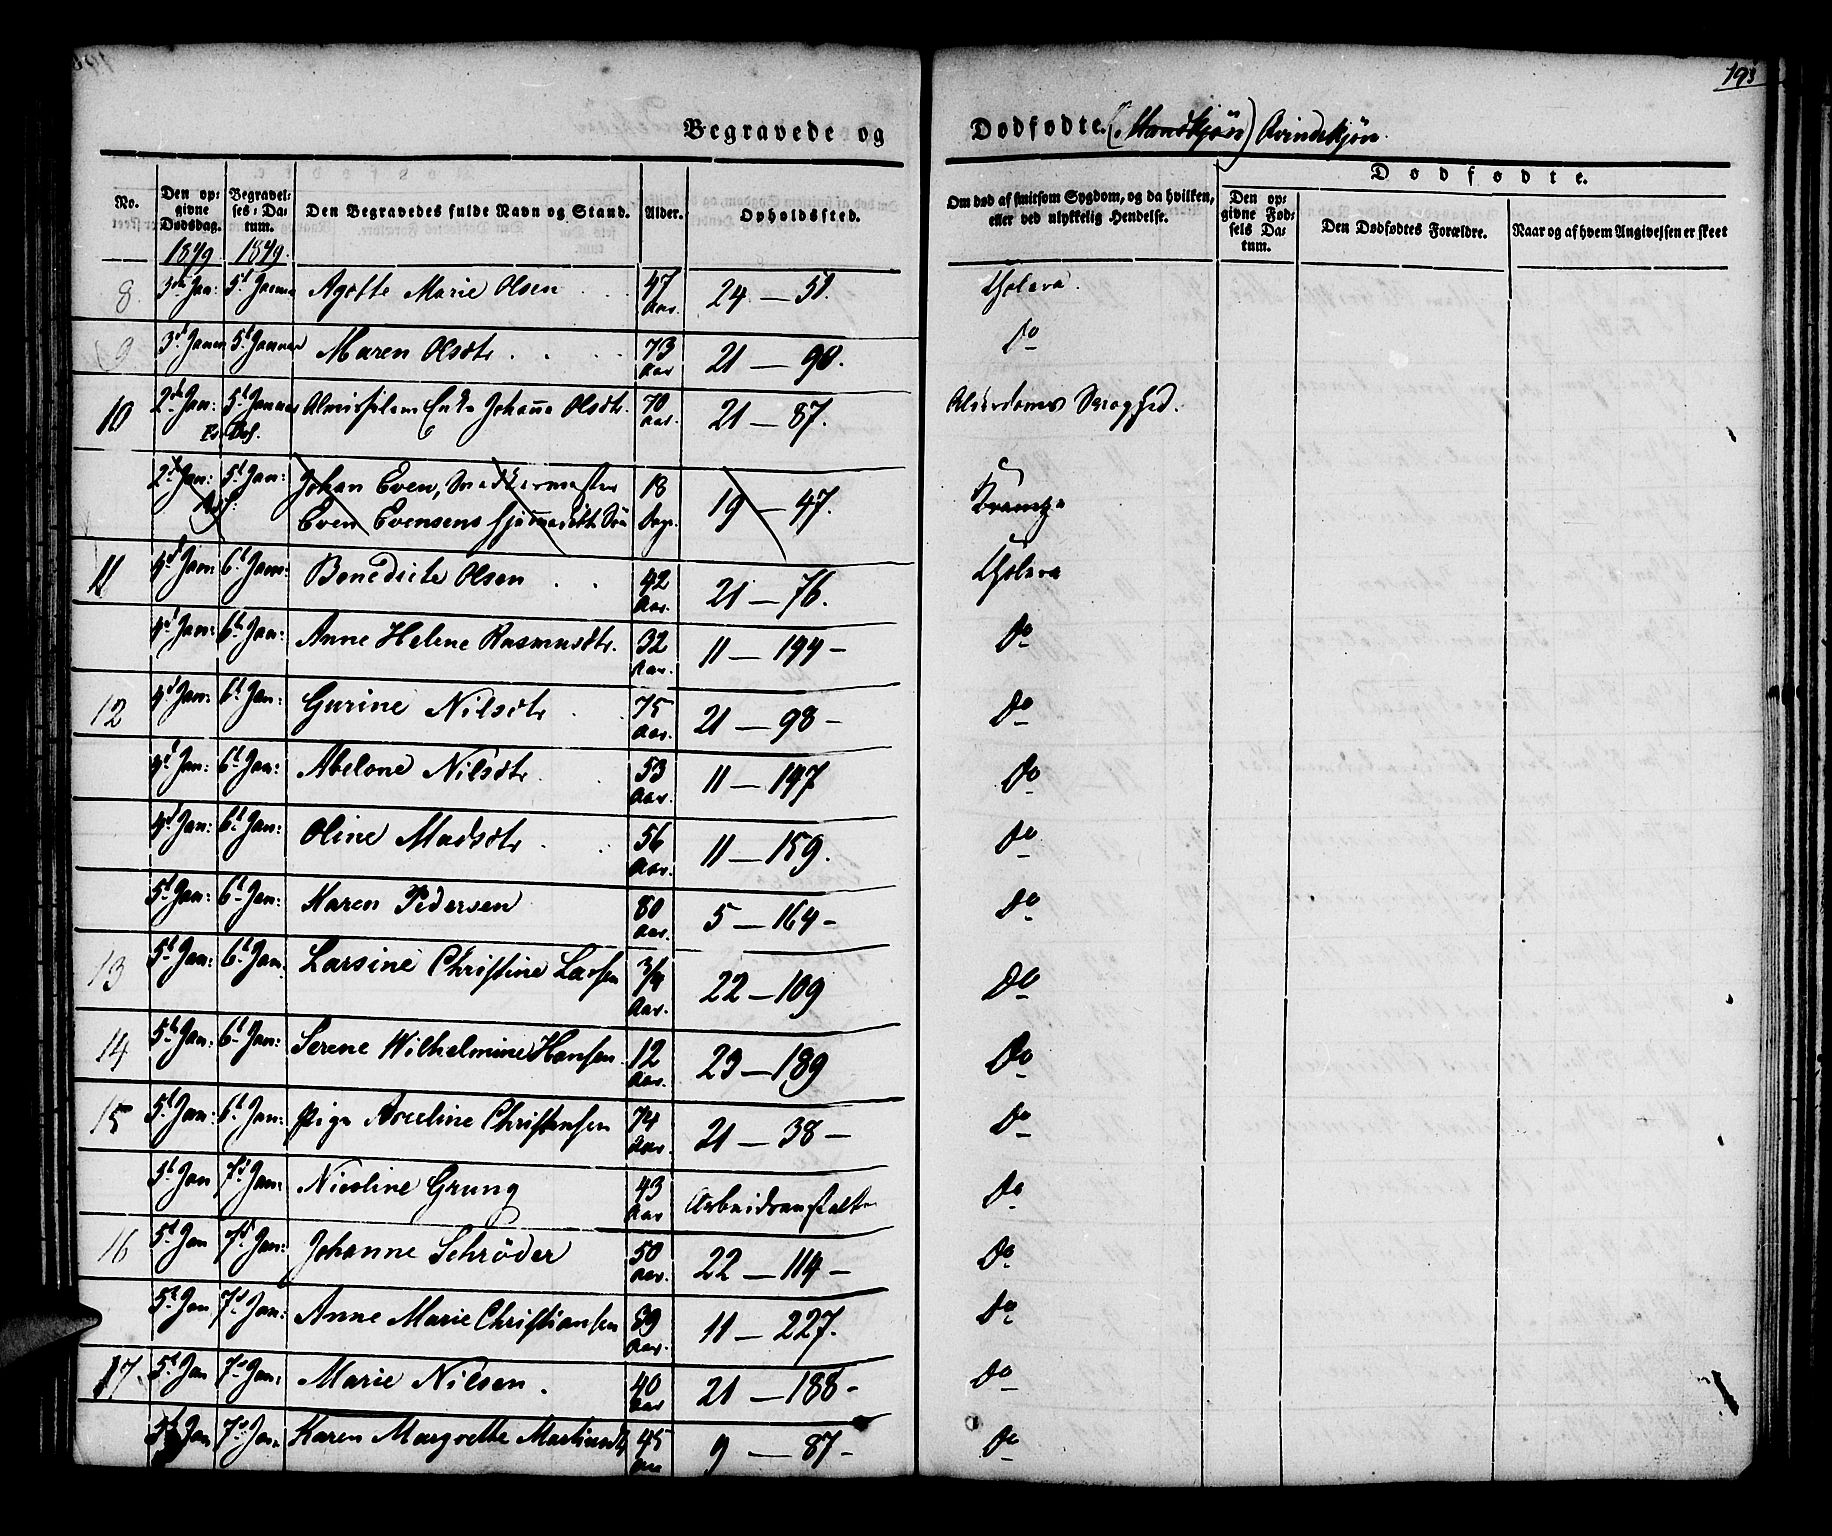 193
Begravede og Dødfødte. (Mandkjøn) Qvindekjøn.
No. Den opgivne Dødsdag. Begravelses-Datum. Den Begravedes fulde Navn og Stand. Alder. Opholdssted. Om død af smitsom Sygdom, og da hvilken, eller ved ulykkelig Hendelse. Dødfødte. Den opgivne Fødsels Datum. Den Dødfødtes Forældre. Naar og af hvem Angivelsen er skeet
1849 1849.
8. 3de Jan: 5t Januar Agathe Marie Olsen 47 Aar. 24 — 51. Cholera.
9 3d Januar 5t Januar Maren Olsdtr 73 Aar 21 — 90. Do
10 2de Jan: 5t Januar Almisselem Enke Johanne Olsdtr. 70 Aar. 21 — 87. Alderdoms Svaghed.
2d Jan: 5t Jan: Johan Even, Snedkermester 18 19 — 47. Krampe
Even Evensens hjemmedøbte Søn Dage.
11 4d Jan: 6t Jan: Benedicte Olsen 42 Aar. 21 — 76. Cholera
4d Jan: 6t Jan: Anne Helene Rasmusdtr. 32 Aar. 11 — 194 — Do
12 4d Jan: 6t Jan: Gurine Nilsdtr 75 Aar. 21 — 98 — Do
4d Jan: 6t Jan: Abelone Nilsdtr. 53 Aar. 11 — 147 Do
4d Jan: 6t Jan: Oline Madsdtr 56 Aar. 11 — 159. Do
5t Jan: 6t Jan: Maren Pedersen 80 Aar. 5 — 164 — Do
13 5t Jan: 6t Jan. Larsine Christine Larsen 3/4 Aar. 22 — 109 Do
14 5t Jan: 6t Jan: Serene Wilhelmine Hansen 12 Aar. 23 — 189 Do
15 5t Jan: 6t Jan: Pige Christensen 74 Aar. 21 — 38 — Do
5t Jan 7d Jan: Nicoline Grung 43 Aar Arbeidsanstalten Do
16 5t Jan 7d Jan: Johanne Schrøder 50 Aar. 22 — 114 — Do
5t Jan 7d Jan: Anne Marie Christiansen 39 Aar. 11 — 227. Do
17 5t Jan 7d Jan: Marie Nilsen. 40 Aar 21 — 188 — Do
5t Jan 7d Jan. Karen Margrethe 45 Aar 9 — 87 — Do